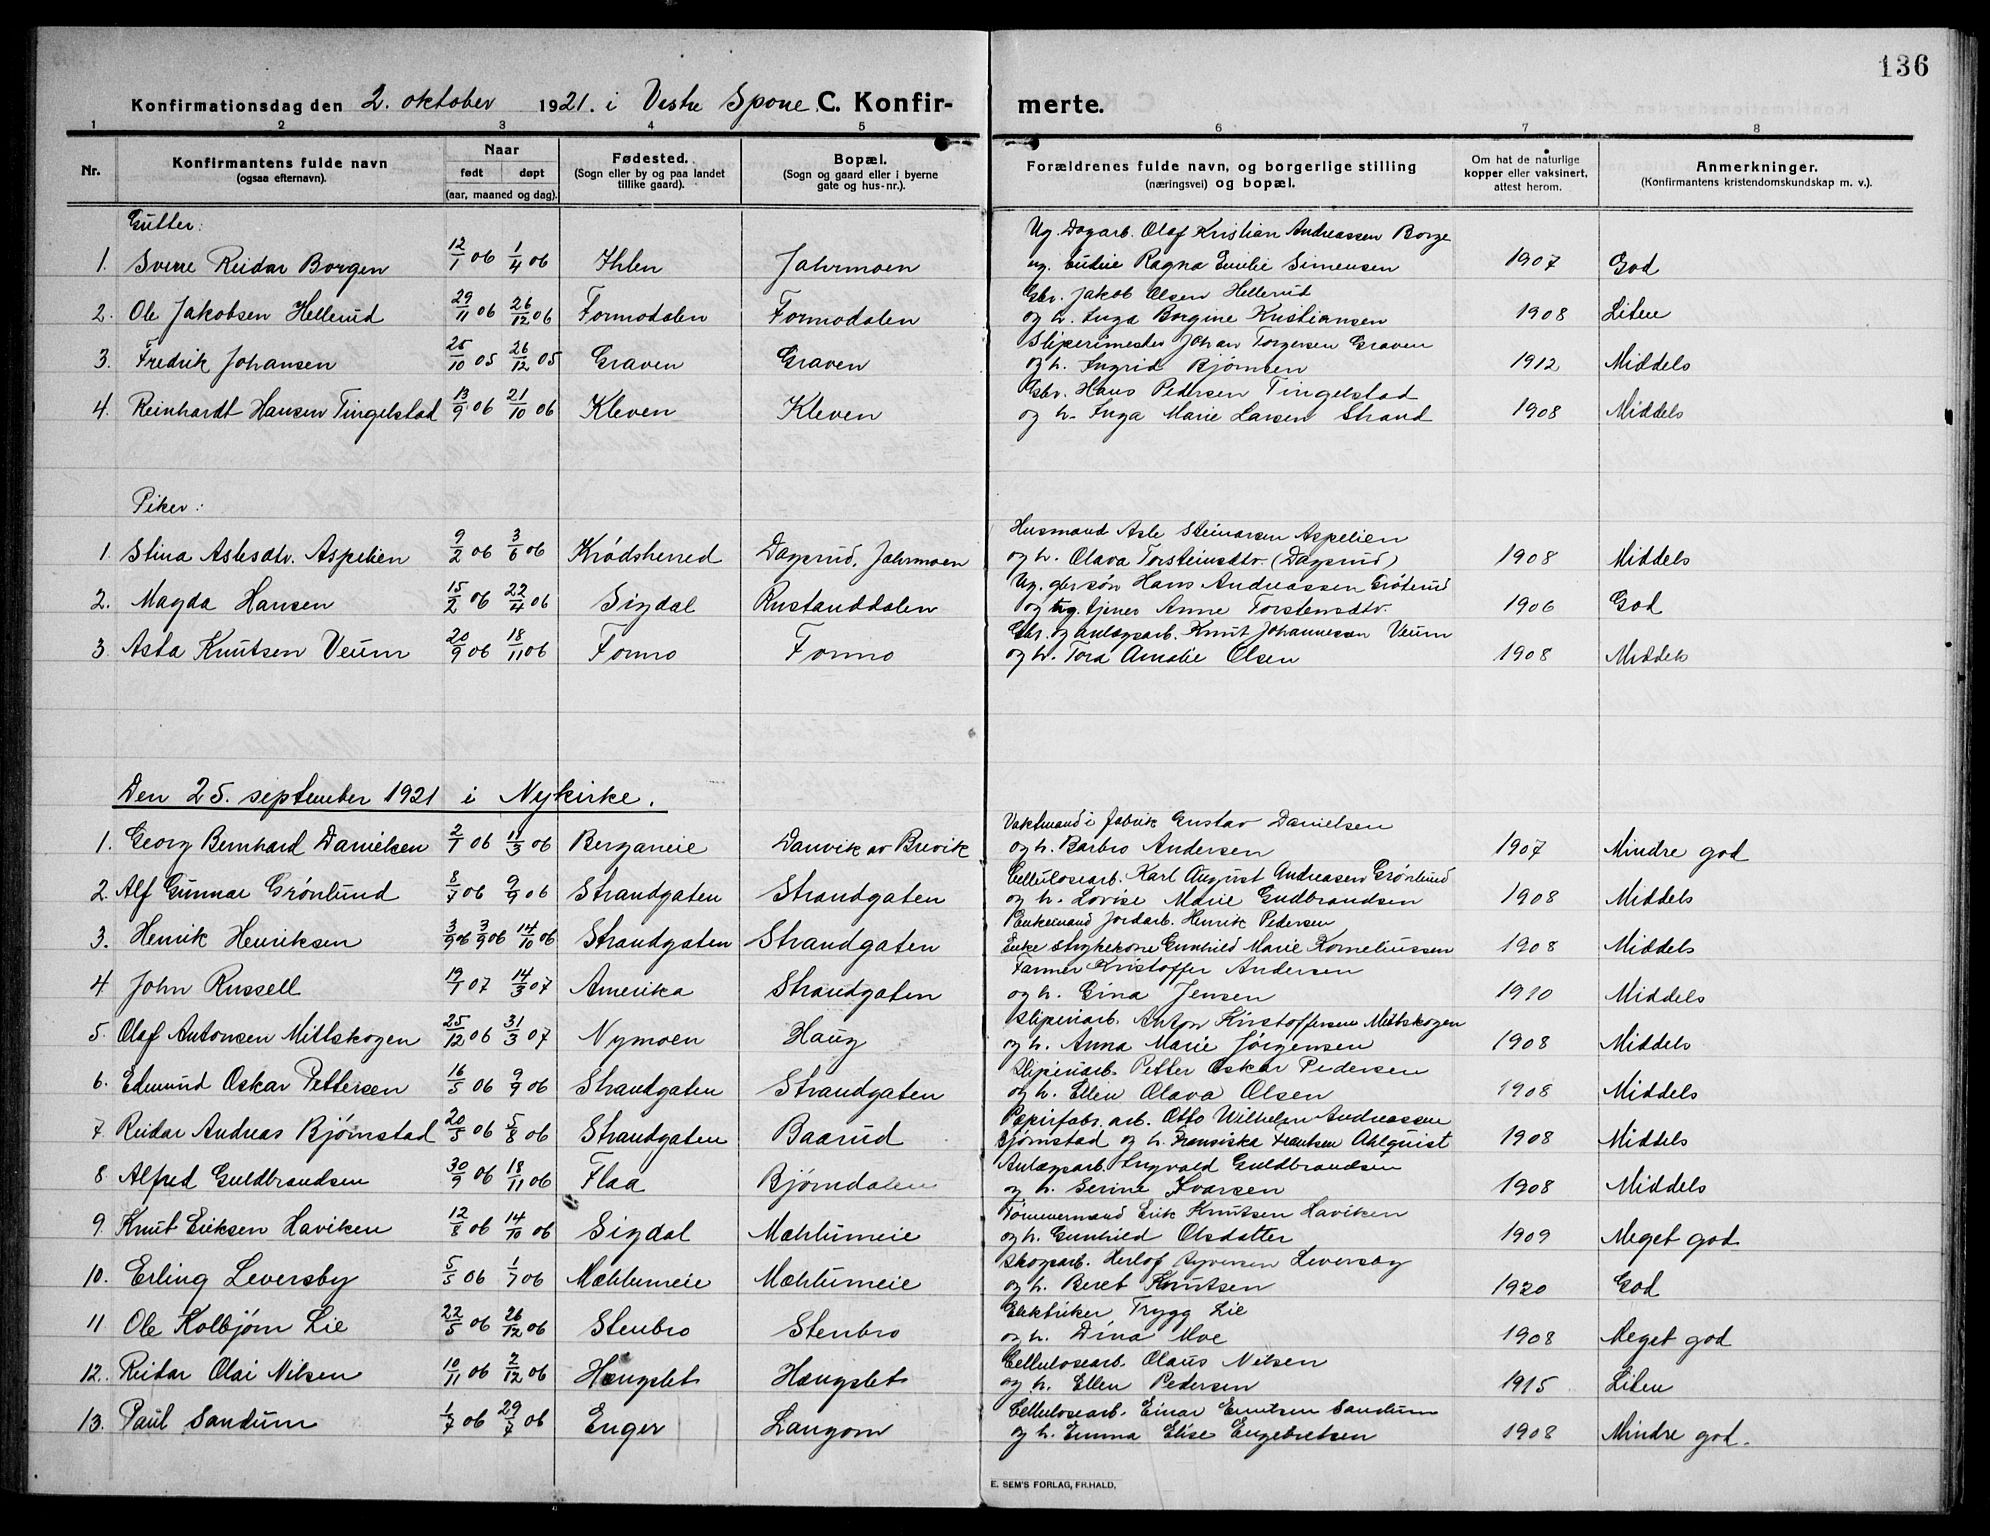 136
Konfirmationsdag den 2. oktober 1921. i Vestre Spone C. Konfirmerte.
1 2 3 4 5 6 7 8
Nr. Konfirmantens fulde navn (ogsaa efternavn). Naar født døpt (aar, maaned og dag). Fødested. (Sogn eller by og paa landet tillike gaard). Bopæl. (Sogn og gaard eller i byerne gate og hus-nr.). Forældrenes fulde navn, og borgerlige stilling (næringsvei) og bopæl. Om hat de naturlige kopper eller vaksinert, attest herom. Anmerkninger. (Konfirmantens kristendomskundskap m. v.).
Gutter:
Ug. Dagarb. Olaf Kristian Andreassen Borge
1. Sverre Reidar Borgen 12/1 06 1/4 06 Ihlen Jahrmoen ug. Ragna Emilie Simensen 1907 God
Gbr. Jakob Olsen Hellerud
2. Ole Jakobsen Hellerud 29/11 06 26/12 06 Formodalen Formodalen og h. Inga Borgine Kristiansen 1908 Liten
Sliperimester Johan Torgersen Graven
3. Fredrik Johansen 25/10 05 26/12 05 Graven Graven og h. Ingrid Bjørnsen 1912 Middels
Gbr. Hans Pedersen Tingelstad
4. Reinhardt Hansen Tingelstad 13/9 06 21/10 06 Kleven Kleven og h. Inga Marie Larsen Strand 1908 Middels
Piker:
Husmand Asle Steinarsen Aspelien
1. Stina Aslesdtr. Aspelien 9/2 06 3/6 06 Krødsherred Dagsrud, Jahrmoen og h. Olava Torsteinsdtr. (Dagsrud) 1908 Middels
Ug. gbr søn Hans Andreassen Grøterud
2. Magda Hansen 15/2 06 22/4 06 Sigdal Rustanddalen og ug. tjener Anne Torstensdtr. 1906 God
Gbr. og anlægsarb. Knut Johannessen Veum
3. Asta Knutsen Veum 20/9 06 18/11 06 Formo Formo og h. Tora Amalie Olsen 1908 Middels
Den 25. september 1921 i Nykirke.
Vaktmand i fabrik Gustav Danielsen
1. Georg Bernhard Danielsen 2/1 06 11/3 06 Berganeie Danvik av Brevik og h. Barbro Andersen 1907 Mindre god
Cellulosearb. Karl August Andreasen Grønlund
2. Alf Gunnar Grønlund 8/7 06 9/9 06 Strandgaten Strandgaten og h. Lovise Marie Gudbrandsen 1908 Middels
Enkemand Jordarb. Henrik Pedersen
3. Henrik Henriksen 3/9 06 3/9 06 14/10 06 Strandgaten Strandgaten Enke strykekone Gunhild Marie Korneliussen 1908 Middels
Farmer Kristoffer Andersen
4 John Russell 19/1 07 14/3 07 Amerika Strandgaten og h. Gina Jensen 1910 Middels
Slipiriarb. Anton Kristoffersen Mittskogen
5. Olaf Antonsen Mittskogen 25/12 06 31/3 07 Nymoen Haug og h. Anna Marie Jørgensen 1908 Middels
Slipiriarb. Petter Oskar Pedersen
6. Edmund Oskar Pettersen 16/5 06 9/9 06 Strandgaten Strandgaten og h. Ellen Olava Olsen 1908 Middels
Papirfabr. arb. Otto Wilhelm Andreassen
7. Reidar Andreas Bjørnstad 20/5 06 5/8 06 Strandgaten Baarud Bjørnstad og h. Fransiska Frantsen Ahlquist 1908 Middels
Anlægsarb. Ingvald Guldbrandsen
8. Alfred Guldbrandsen 30/9 06 18/11 06 Flaa Bjørndalen og h. Serine Ivarsen 1908 Middels
Tømmermand Erik Knutsen Haviken
9. Knut Eriksen Haviken 12/8 06 14/10 06 Sigdal Mæhlumeie og h. Gunhild Olsdatter 1909 Meget god
Skogarb. Herlof Syversen Leversby
10. Erling Leversby 5/5 06 1/7 06 Mæhlumeie Mæhlumeie og h. Beret Knutsen 1920 God
Elektriker Trygg Lie
11 Ole Kolbjørn Lie 22/5 06 26/12 06 Stenbro Stenbro og h. Dina Moe 1908 Meget god
Cellulosearb. Olaus Nilsen
12. Reidar Olai Nilsen 10/11 06 2/12 06 Hængslet Hængslet og h. Ellen Pedersen 1915 Liten
Cellulosearb. Einar Sandum
13. Paul Sandum 1/7 06 29/7 06 Enger Langom og h. Emma Elise Engebretsen 1908 Mindre god.
E. SEM'S FORLAG, FR.HALD.